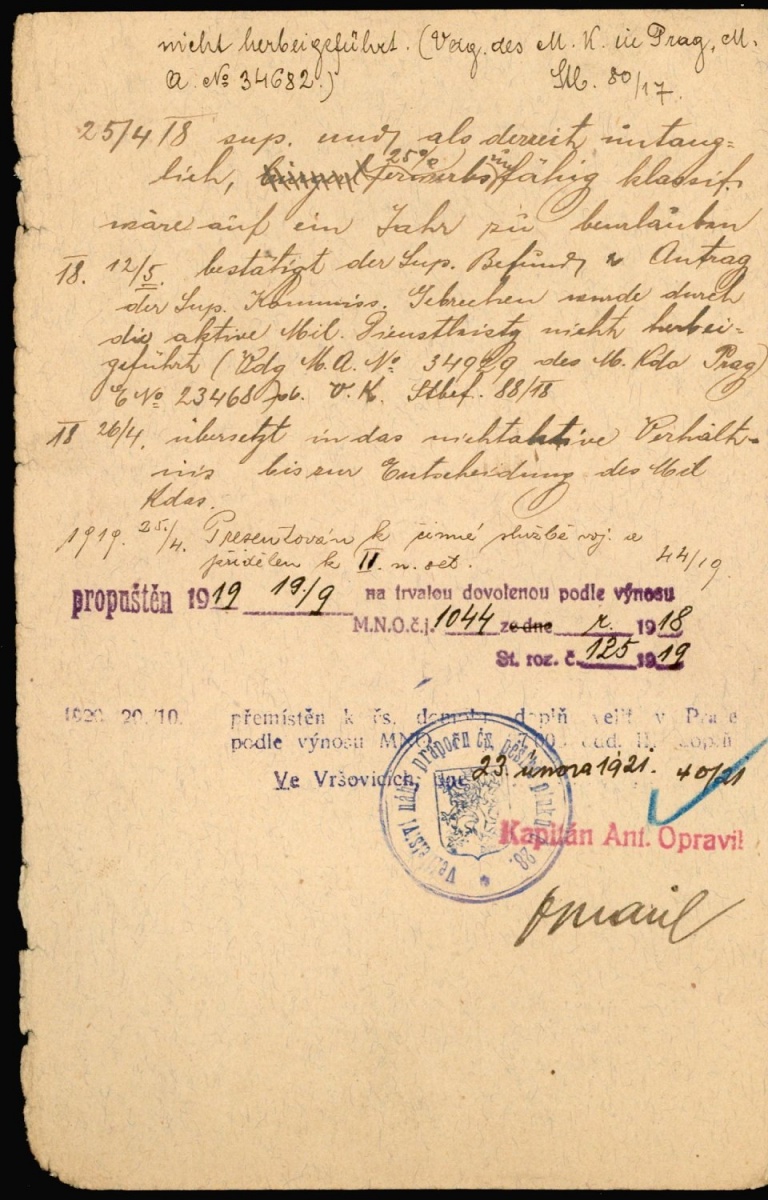 nicht herbeigeführt. (Vdg. des M. K. in Prag, M.
A. No 34682.) Stb. 80/17.
25/4 18 sup. und als derzeit untaug-
lich, 25% erwerbsunfähig klassif.
wäre auf ein Jahr zu beurlauben
18. 12/5. bestätigt der Sup. Befund u Antrag
der Sup. Kommiss. Gebrechen wurde durch
die aktive Mil. Dienstleistg nicht herbei-
geführt (Vdg M. A. No 34929 des M. Kdo Prag)
E No 23468 V. K. Stbef. 88/18
18 26/4. übersetzt in das nichtaktive Verhält-
nis bis zur Entscheidung des Mil
Kdas.
1919. 25./4. Presentován k činné službě voj. a
přidělen k II. n. set. 44/19
propuštěn 1919 19./9 na trvalou dovolenou podle výnosu
M.N.O.č.j. 1044 ze dne r. 1918
St. roz. č. 125 1919
1920 20./10. přemístěn k čs. doplň velit v Praze
podle výnosu MNO
Ve Vršovicích, dne 23. února 1921. 40/21
Kapitán Ant. Opravil
Opravil